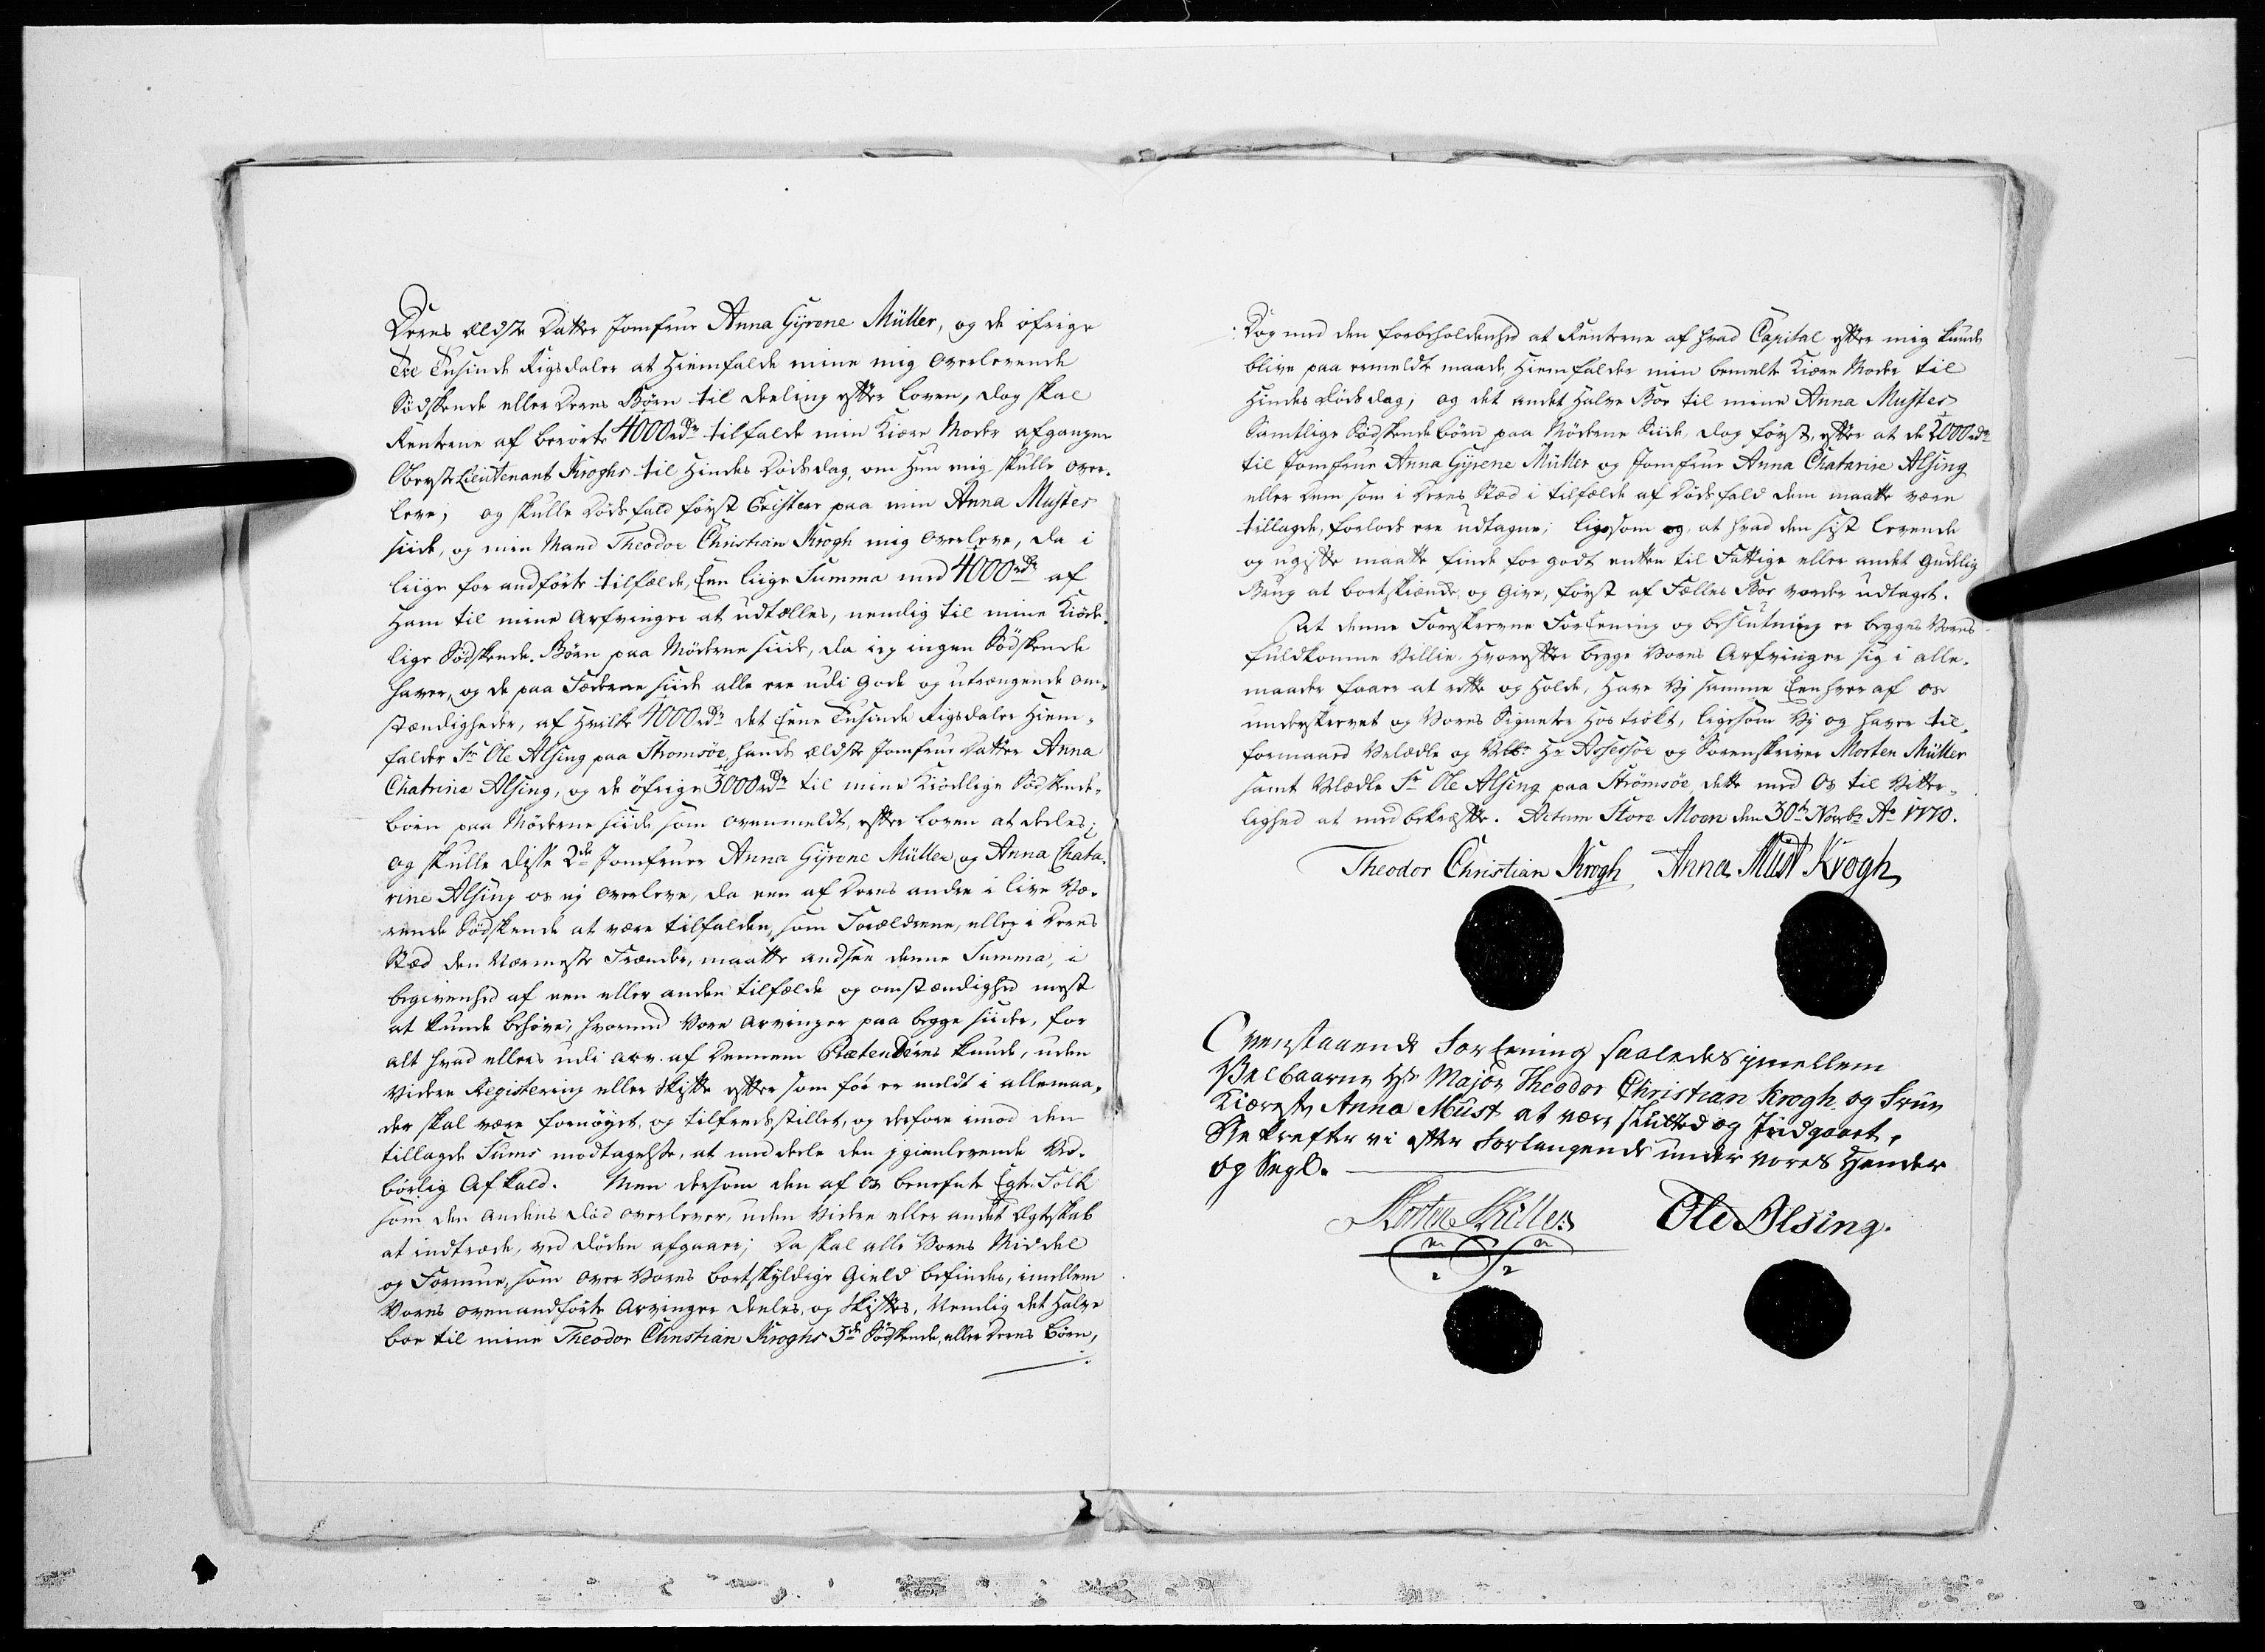 Deres ældste Datter Jomfrue Anna Gyrene Müller, og de öfrige
Tre Tusinde Rigsdaler at Hiemfalde mine mig Overlevende
Södskende eller Deres Börn til deeling efter Loven, dog skal
Renterne af berörte 4000 rdr tilfalde min Kiære Moder afgangne
Oberste Lieutenant Kroghs til Hindes Dödsdag, om Hun mig skulle over-
leve; og skulle Dödsfald först Existere paa min Anna Mustes
siide, og min Mand Theodor Christian Krogh mig Overleve, da i
liige for andförte tilfælde, Een liige Summa med 4000 rdr af
Ham til mine Arfvinger at udtælles, nemlig til mine Kiöde-
lige Södskende-Börn paa Möderne siide, da ieg ingen Södskende
haver, og de paa Fæderne siide alle ere udi gode og utrængende om-
stændigheder, af hvilke 4000 rdr det Eene Tusinde Rigsdaler Hiem-
falder Sr Ole Alsing paa Strömsöe, hands ældste Jomfrue Datter Anna
Chatrine Alsing, og de öfrige 3000 rdr til mine Kiödelige Södskende-
börn paa Möderne siide som ovenmeldt, efter Loven at deeles;
og skulle disse 2de Jomfruer Anna Gyrene Müller og Anna Chata-
rine Alsing os ej overleve, da een af Deres andre i live Væ-
rende Södskende at være tilfalden, som Forældrene, eller i Deres
Stæd den Nærmeste Frænder, maatte andsee denne Summa, i
begivenhed af een eller anden tilfælde og omstændighed mest
at kunde behöve; hvormed Vore Arvinger paa begge siider, for
alt hvad ellers udi arv af Dennem Prætenderes kunde, uden
Videre Registering eller Skifte efter som för er meldt i allemaa-
der skal være fornöyet, og tilfredsstillet, og derfore imod den
tillagde Sums modtagelse, at meddeele den igienlevende Ved-
börlig Afkald. Men dersom den af Os benefnte Egte-Folk
som den Andens död overlever, uden Videre eller andet Ægteskab
at indtræde, ved döden afgaaer; Da skal alle Vores Middel
og Formue, som over Vores bortskyldige Gield befindes, imellem
Vores ovenandförte Arvinger deeles, og skiftes, Nemlig det Halve
boe til mine Theodor Christian Kroghs 3de Södskende, eller Deres Börn,
Dog med den forbeholdenhed at Renterne af hvad Capital efter mig kunde
blive paa ermeldte maade, Hiemfalder min bemelte Kiære Moder til
Hindes Dödsdag; og det andet Halve Boe til mine Anna Mustes
Samtlige Södskendebörn paa Möderne Siide, dog först, efter at de 2000 rdr
til Jomfrue Anna Gyrene Müller og Jomfrue Anna Chatarine Alsing
eller dem som i Deres Stæd i tilfælde af Dödsfald dem maatte være
tillagde, forlods ere udtagne; ligesom og, at hvad den sist levende
og ugifte maatte finde for godt enten til Fattige eller andet Gudelig
Brug at bortskiænde, og Give, först af Fælles Boe vorder udtaget.
At denne Foreskrevne Foreening og beslutning er begges Vores
fuldkomne Villie, Hvorefter begge Vores Arfvinger sig i alle-
maader haver at rette og Holde, Have Vj samme Eenhver af os
underskrevet og Vores Signeter Hos trökt, ligesom Vj og haver til-
formaaed Velædle og Hr Assessor og Sorenskriver Morten Müller
samt Velædle Sr Ole Alsing paa Strömsöe, dette med Os til Vitter-
lighed at med bekræfte. Actum Store Moen den 30te Novbr Ao 1770.
Theodor Christian Krogh Anna Must Krogh
Ovenstaaende Foreening saaledes jmellem
Velbaarne Hr Major Theodor Christian Krogh og Frue
Kiæreste Anna Must at være slutted og Jndgaaet,
Bekrefter vi efter Forlangende under vores Hender
og Segl.
Morten Müller Ole Alsing.